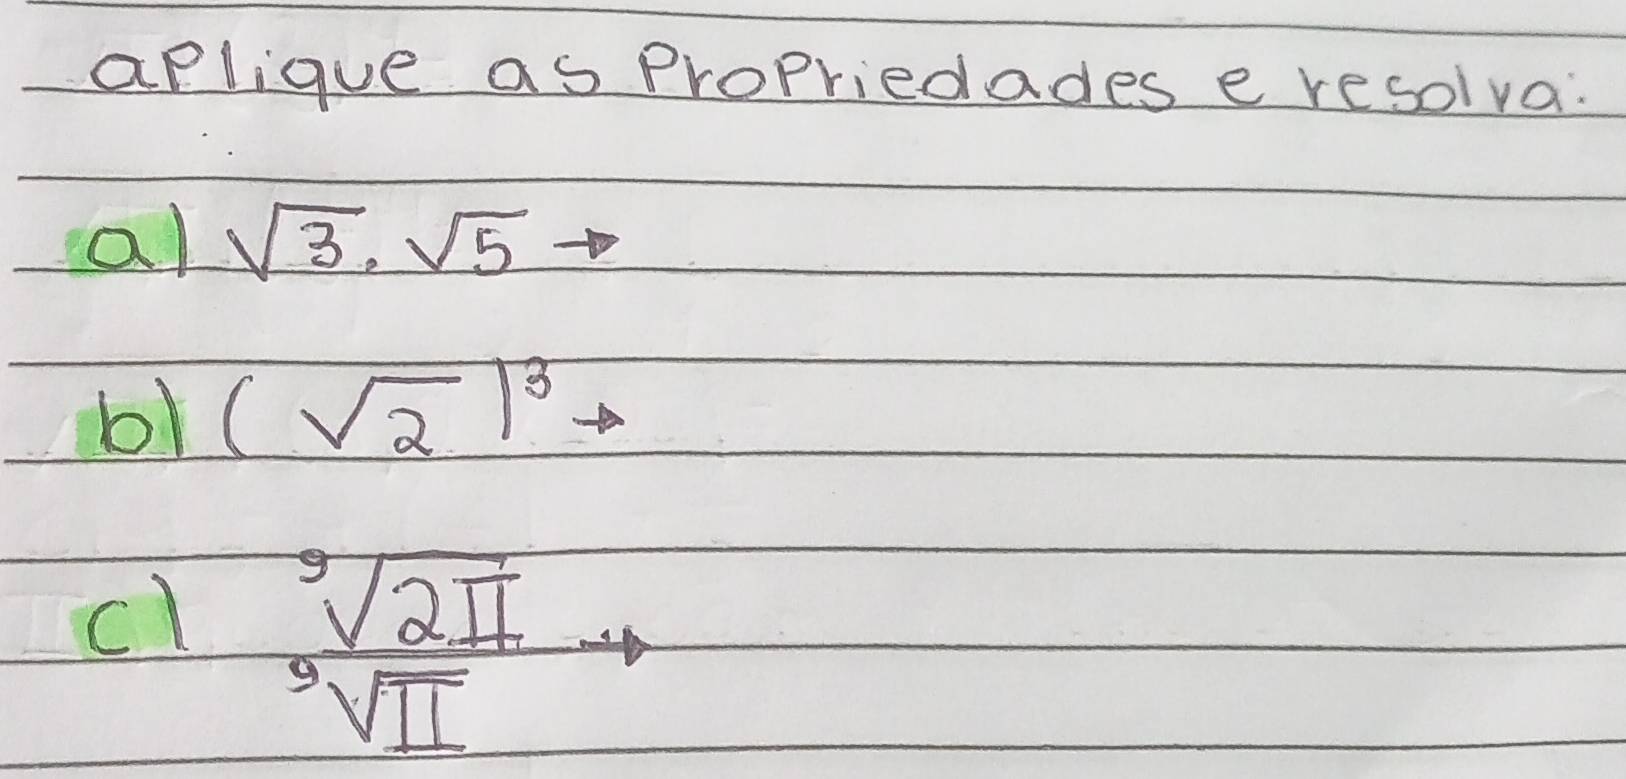 aplique as Propriedades e resolva:
a) √3 . √5 →
b) (√2)³ →
c) ⁹√2π / ⁹√π →